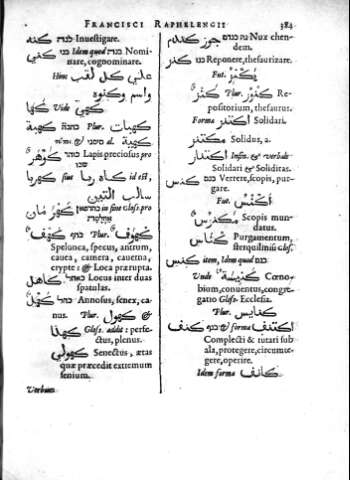 FRANCISCI RAPHELENGII 384
كنه כנה Inuestigare.
كني כני Idem quod כנה Nomi-
nare, cognominare.
Hinc علي كل لقب
واسم وكنوه
Vide كهي كها
كهنة כהנה Plur. كهنات
كوهر כוהר Lapis preciosus pro
كهربا siue كاه ربا id est,
سالب التبن
in fine Gloss. pro
كهف Plur. كهوف
Spelunca, specus, antrum,
cauea, camera, cauerna,
crypte: & Loca prærupta.
كاهل כאהל Locus inter duas
spatulas.
كهل כהל Annosus, senex, ca-
nus. Plur. كهول &
كهلا Gloss. addit: perfe-
ctus, plenus.
كهولي Senectus, ætas
quæ præcedit extremum
senium.
Verbum
جوز كندم Nux chen-
dem.
كنز כנז Reponere, thesaurizare.
Fut. يكنز
كنز Plur. كنوز Re-
positorium, thesaurus.
Forma اكتنز Solidari.
مكتنز Solidus, a.
اكتناز Infin. & verbale
Solidari & Soliditas.
كنس כנס Verrere, scopis, pur-
gare.
Fut.
Scopis mun-
datus.
كناس Purgamentum,
sterquilinium Gloss.
كنس item, Idem quod כנס
Vnde كنيسة Cœno-
bium, conuentus, congre-
gatio Gloss. Ecclesia.
Plur. كنايس
كنف כנף & forma اكتنف
Complecti & tutari sub
ala, protegere, circumte-
gere, operire.
Idem forma كانف